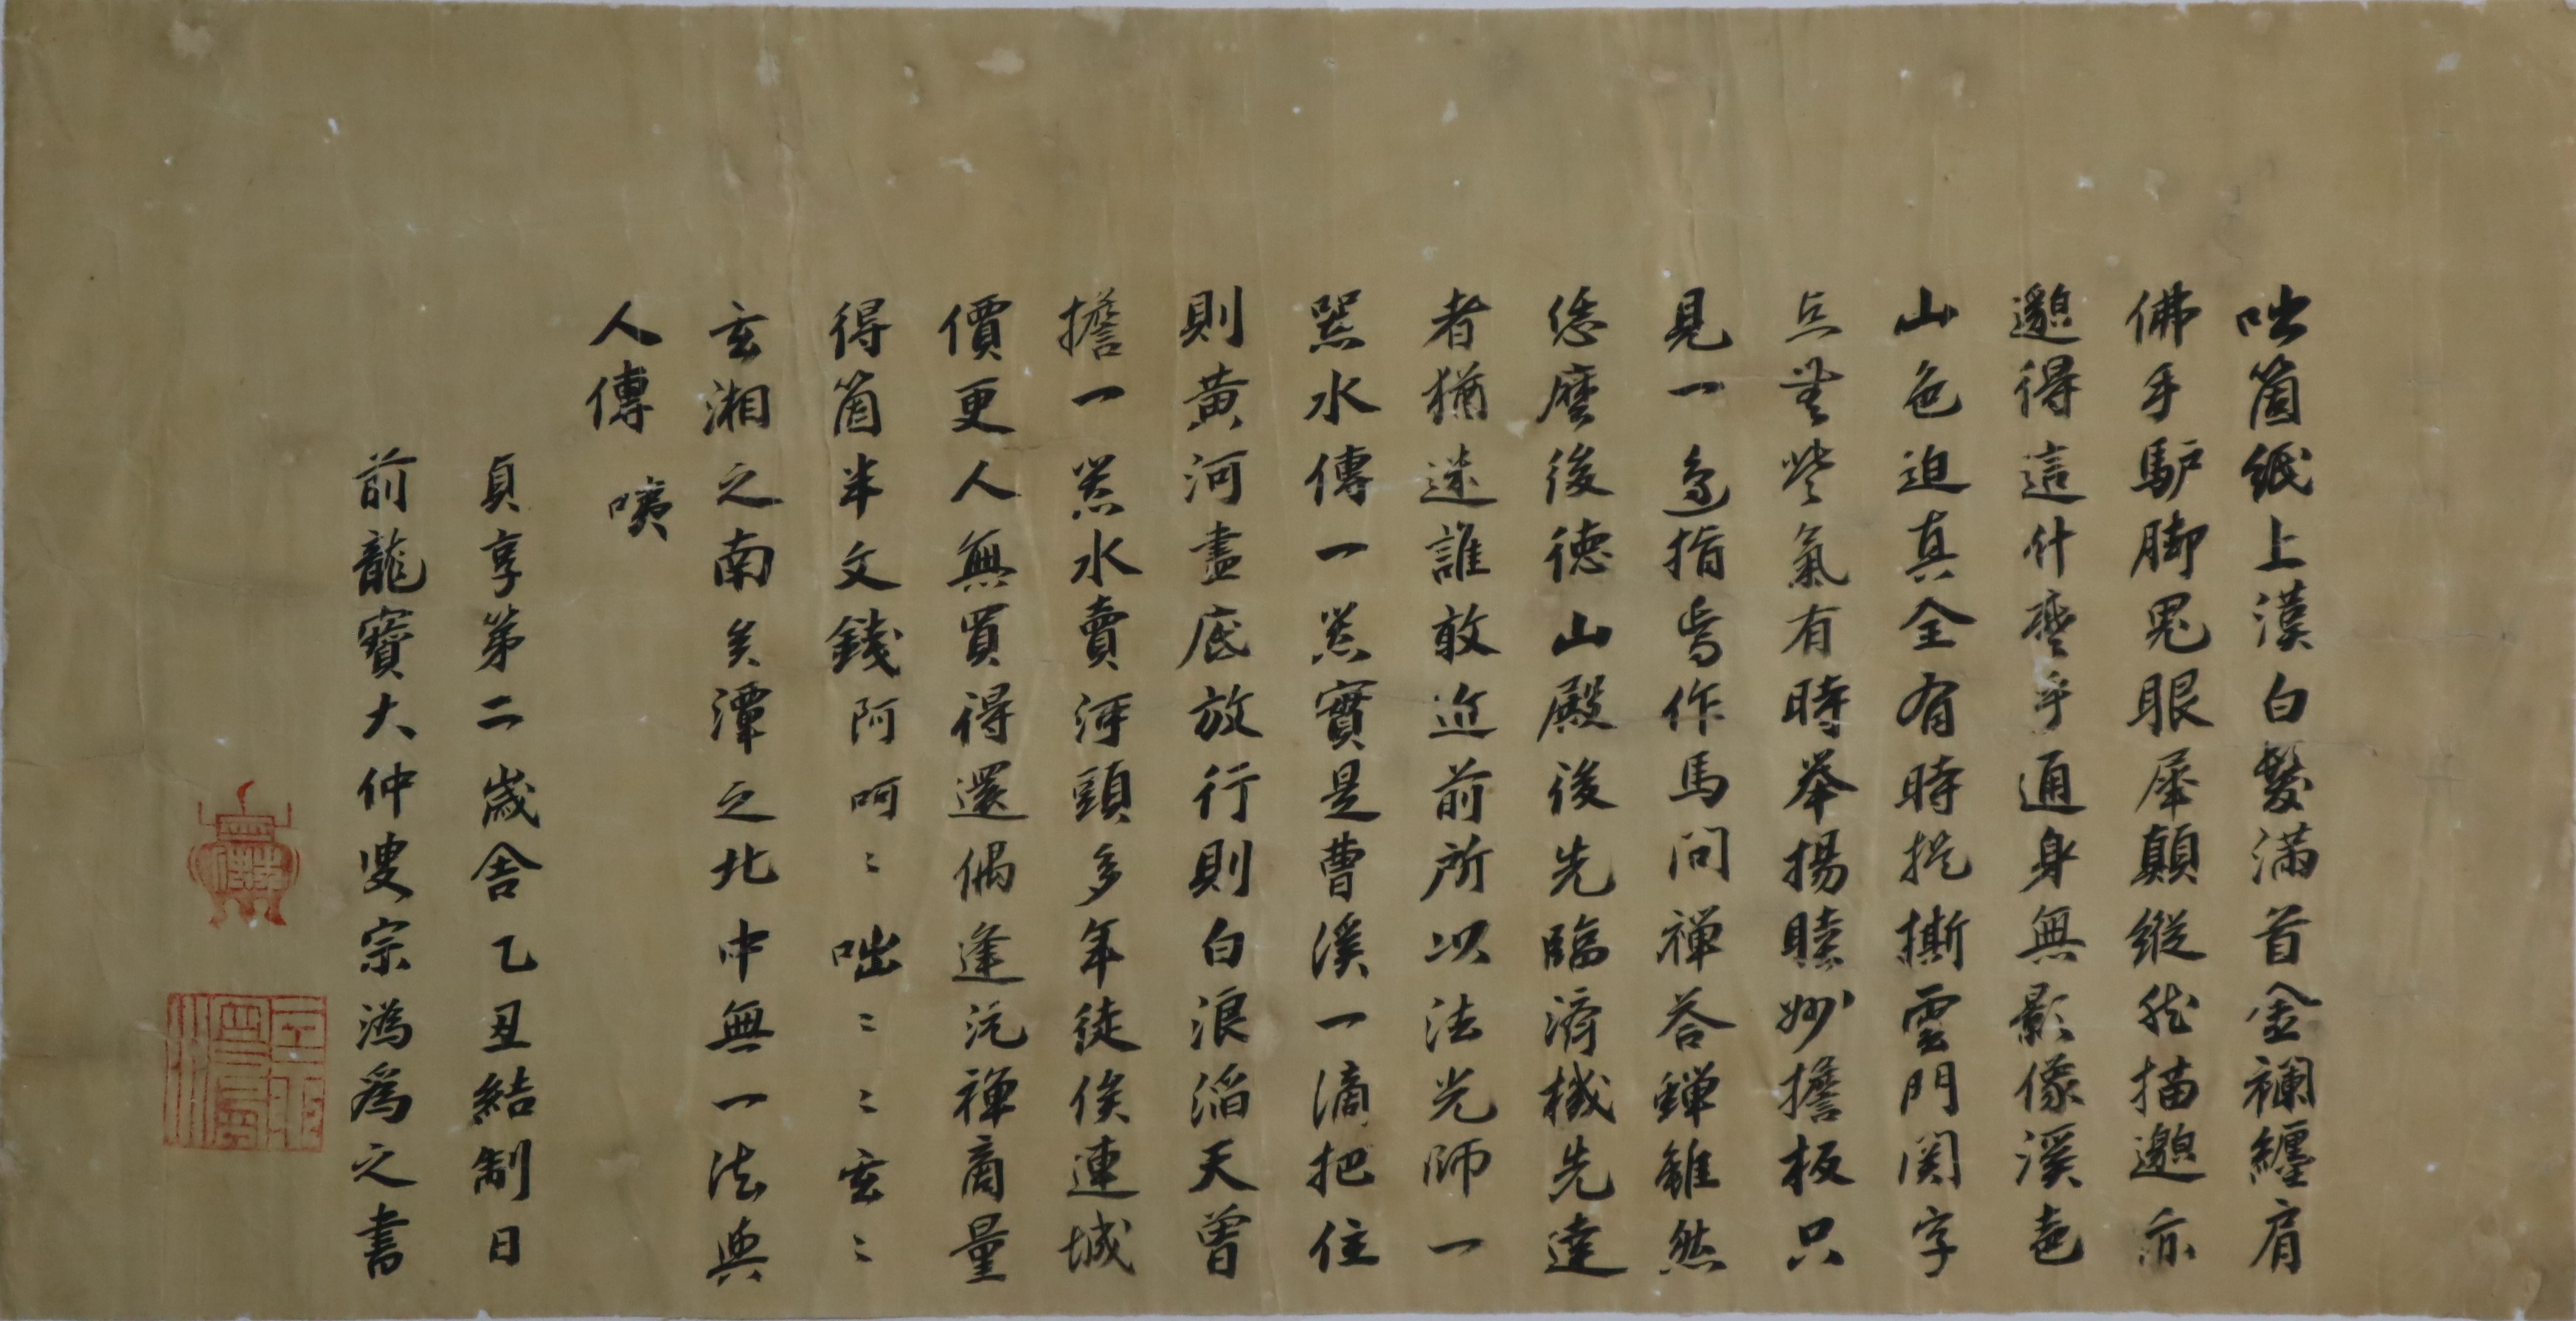 咄箇紙上漢白髮滿首金襴纏肩
佛手馿脚鬼眼犀顛縱然描邈亦
邈得這什麼乎通身無影像溪色
山色迫真全有時提撕雲門関字
点無炭氣有時舉揚睦妙擔板只
見一邊指烏作馬問禅荅蟬雖然
恁麼後德山殿後先臨濟機先達
者猶迷誰敢近前所以法光師一
器水傳一器實是曹溪一滴把住
則黃河盡底放行則白浪滔天曽
擔一器水賣河頭多年徒俟連城
價更人無買得還偶逢沅禅商量
得箇半文錢阿呵〻咄〻〻玄〻
玄湘之南矣潭之北中無一法與
人傳 咦
貞享第二歳舍乙丑結制日
前龍寳大仲叟宗渤為之書